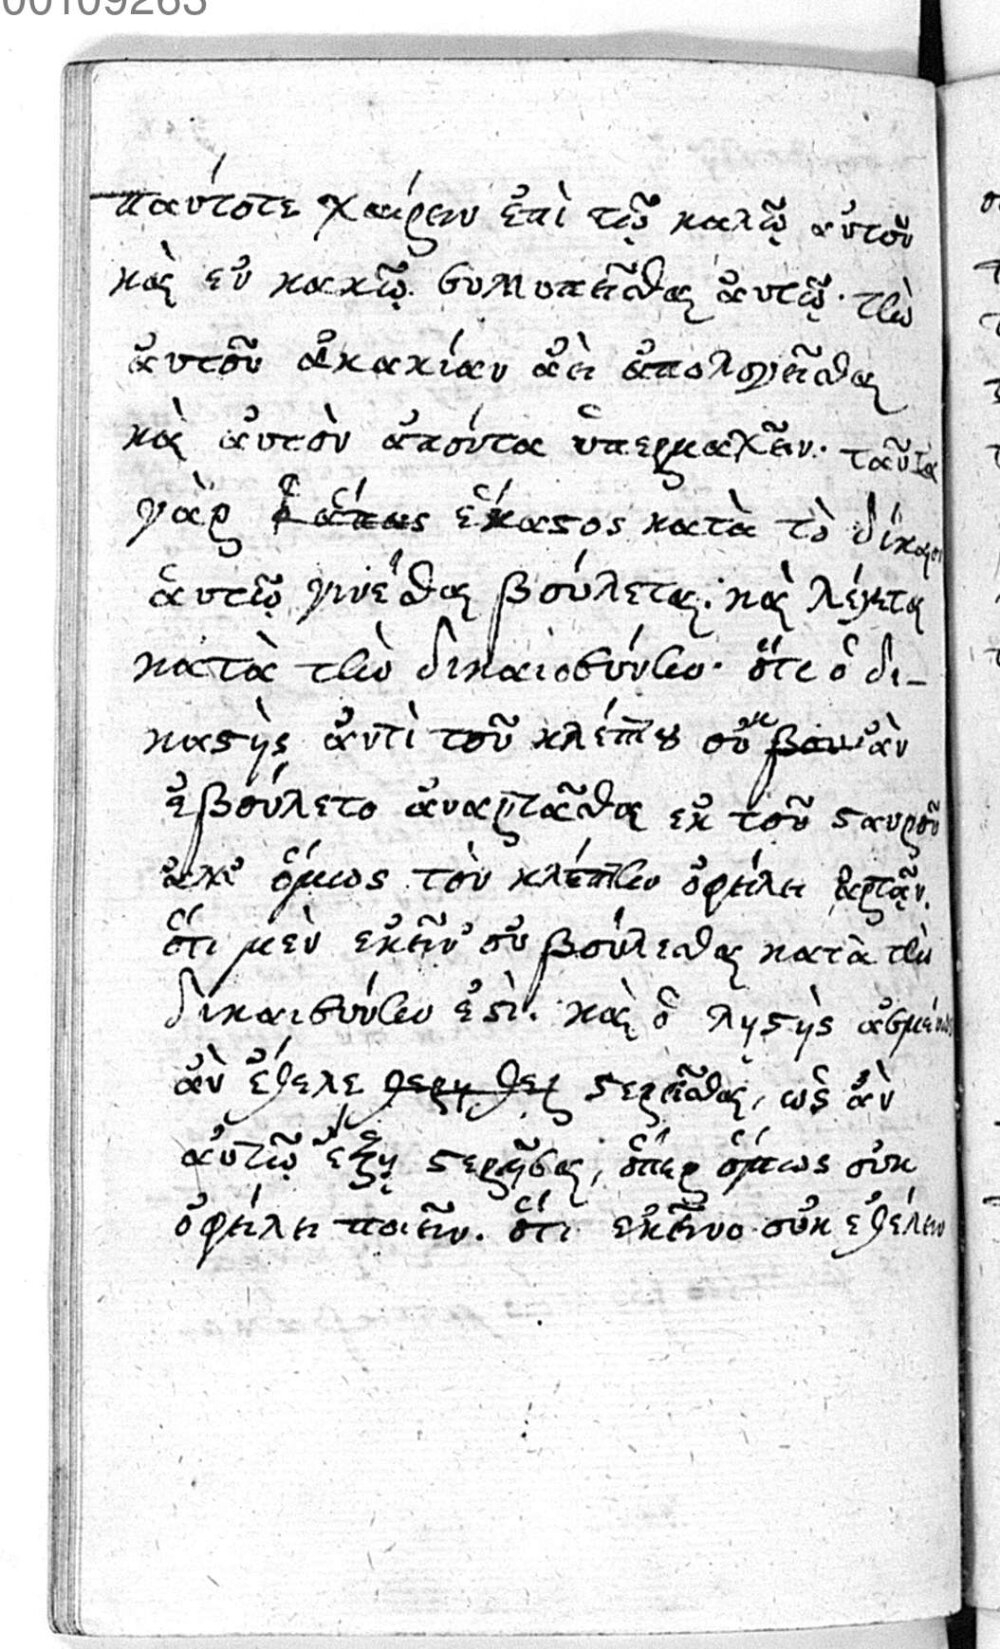 00109263
πάντοτε χαίρειν ἐπὶ τῷ καλῷ αὐτοῦ
καὶ ἐν κακῷ συμπαθεῖσθαι αὐτῷ· τὴν
αὐτοῦ ἀκακίαν ἀεὶ ἀπολογεῖσθαι
καὶ αὐτὸν ἀπόντα ὑπερμαχεῖν· ταῦτα
γὰρ ἕκαστος κατὰ τὸ δίκαιον
ἑαυτῷ γινέσθαι βούλεται· καὶ λέγεται
κατὰ τὴν δικαιοσύνην· ὅτι ὁ δι-
καστὴς ἀντὶ τοῦ κλέπτου οὐκ ἂν
ἐβούλετο ἀναρτᾶσθαι ἐκ τοῦ σταυροῦ
ἀλλ' ὅμως τὸν κλέπτην ὀφείλει ἀρτᾶν.
ὅτι μὲν ἐκεῖν' οὐ βούλεσθαι κατὰ τὴν
δικαιοσύνην ἐστί. καὶ ὁ λῃστὴς ἀσμένως
ἂν ἔθελε στερεῖσθαι, ὡς ἂν
αὐτῷ ἐξῇ στερῆσαι, ὅπερ ὅμως οὐκ
ὀφείλει ποιεῖν. ὅτι ἐκεῖνο οὐκ ἐθέλειν